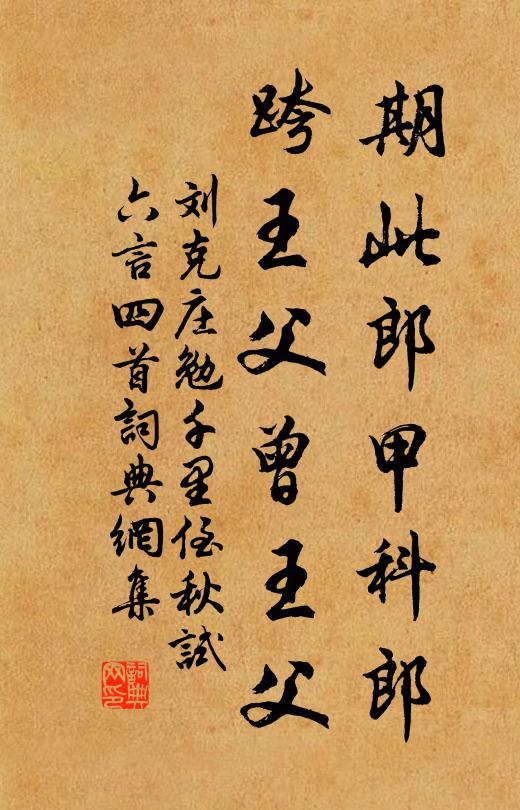 期此郎甲科郎
跨王父曾王父
刘克庄勉千里侄秋試
六言四首詞典網集
詞典網印